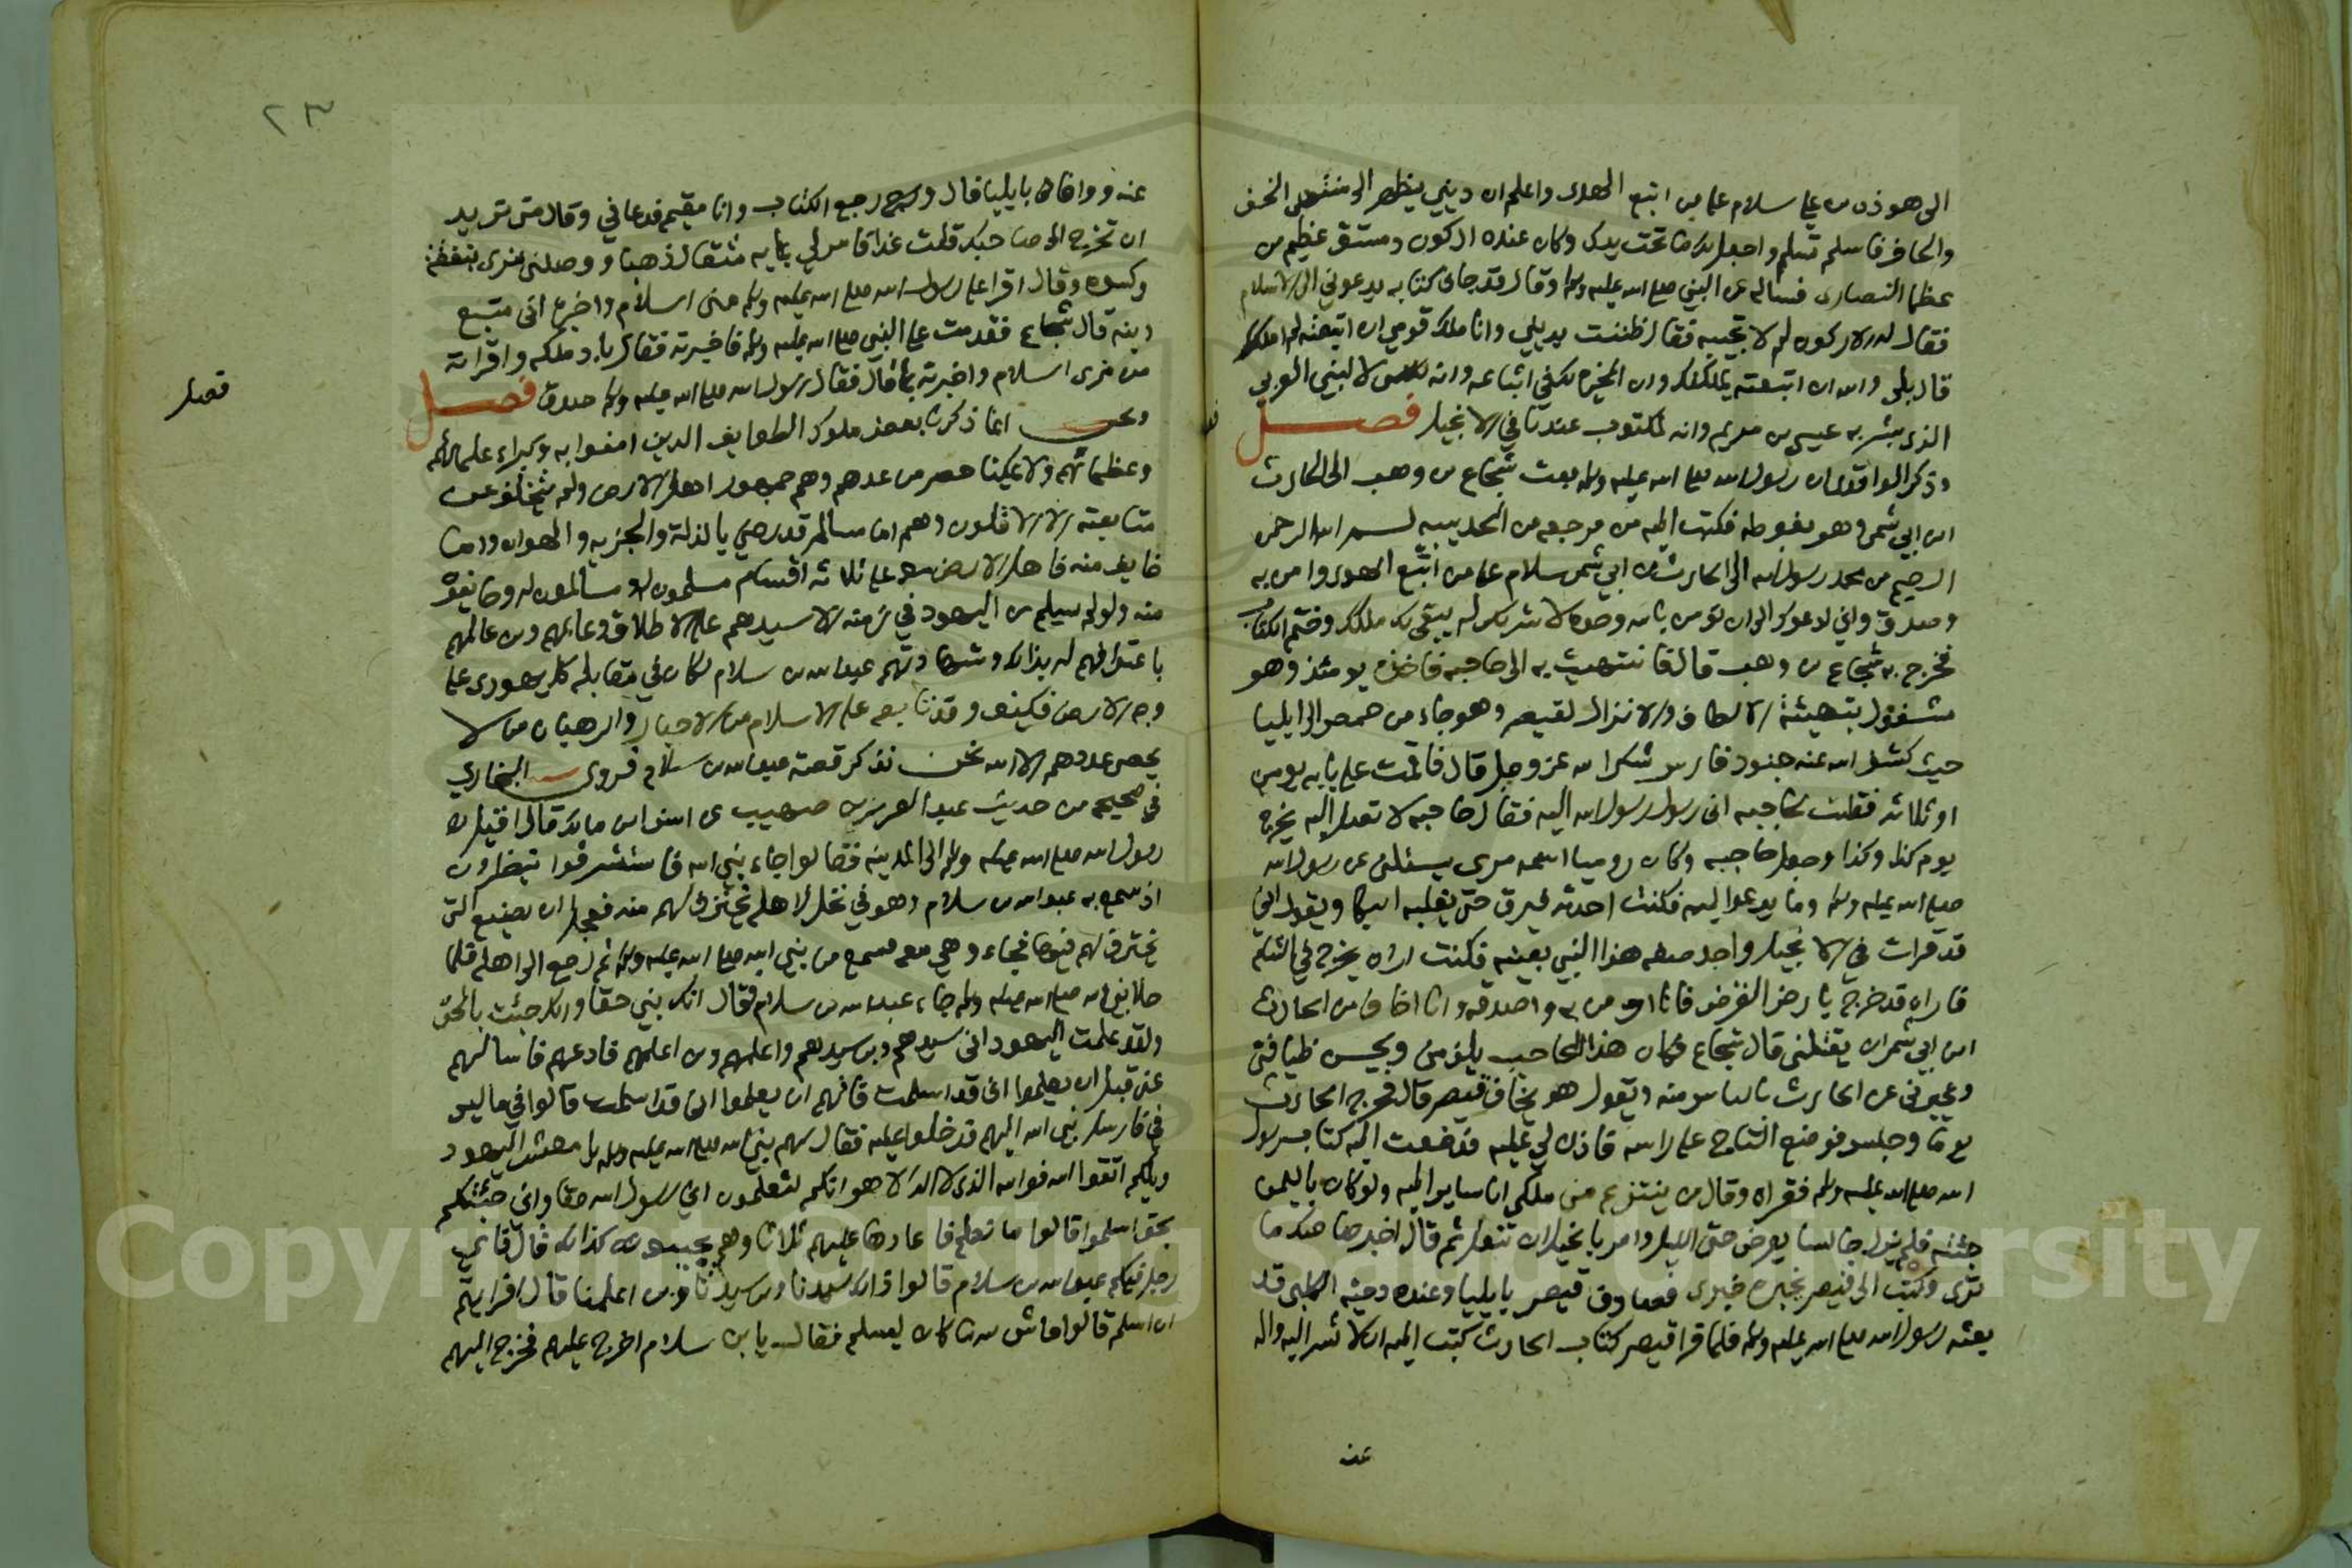 الى هوذه بن علي سلام على من اتبع الهدى واعلم ان ديني يظهر الى منتهى الخف
والحافر فاسلم تسلم واجعل لك ما تحت يدك وكان عنده اركون دمشق عظيم من
عظما النصارى فساله عن النبي صلى الله عليه وسلم وقال قد جاني كتابه يدعوني الى الاسلام
فقال له الاركون لم لا تجيبه فقال ظننت بديني وانا ملك قومي ان اتبعته لم املك
قال بلى والله ان اتبعته ليملكنك وان الخيره لك في اتباعه وانه للنبي العربي
الذي بشر به عيسى بن مريم وانه لمكتوب عندنا في الانجيل فصل
وذكر الواقدي ان رسول الله صلى الله عليه وسلم بعث شجاع بن وهب الى الحارث
ابن ابي شمر وهو بغوطه فكتب اليه من مرجعه من الحديبيه بسم الله الرحمن
الرحيم من محمد رسول الله الى الحارث بن ابي شمر سلام على من اتبع الهدى وامن به
وصدق واني ادعوك الى ان تومن بالله وحده لا شريك له يبقى لك ملكك وختم الكتاب
فخرج به شجاع بن وهب قال فانتهيت به الى حاجبه فاخذه يومئذ وهو
مشغول بتهيئة الالطاف والانزال لقيصر وهو جاء من حمص الى ايليا
حيث كشف الله عنه جنود فارس شكرا لله عز وجل قال فاقمت على بابه يومين
او ثلاثه فقلت لحاجبه اني رسول رسول الله اليه فقال حاجبه لا تصل اليه يخرج
يوم كذا وكذا وجعل حاجبه وكان روميا اسمه مري يسئلني عن رسول الله
صلى الله عليه وسلم وما يدعوا اليه فكنت احدثه فيرق حتى يغلبه البكا ويقول اني
قد قرات في الانجيل واجد صفه هذا النبي بعينه فكنت اراه يخرج في الشام
فاراه قد خرج بارض القرض فانا اومن به واصدقه وانا اخاف من الحارث
ابن ابي شمر ان يقتلني قال شجاع فكان هذا الحاجب يكرمني ويحسن ضيافتي
ويخبرني عن الحارث بالياس منه ويقول هو يخاف قيصر قال فخرج الحارث
يوما وجلس فوضع التاج على راسه فاذن لي عليه فدفعت اليه كتاب رسول
الله صلى الله عليه وسلم فقراه وقال من ينتزع مني ملكي انا ساير اليه ولو كان باليمن
جئته فلم يزل جالسا يعرض حتى الليل وامر بالخيل ان تنعل ثم قال اخبر صاحبك ما
ترى وكتب الى قيصر يخبره خبري فصادف قيصر بايليا وعنده دحيه الكلبي قد
بعثه رسول الله صلى الله عليه وسلم فلما قرا قيصر كتاب الحارث كتب اليه ان لا تسر اليه واله
عنه
٢٣
عنه ووافاني بايليا قال ورجع الكتاب وانا مقيم فدعاني وقال متى تريد
ان تخرج الى صاحبك قلت غدا فامر لي بمايه مثقال ذهبا ووصلني مري بنفقه
وكسوه وقال اقرا على رسول الله صلى الله عليه وسلم مني السلام واخبره اني متبع
دينه قال شجاع فقدمت على النبي صلى الله عليه وسلم فاخبرته فقال باد ملكه واقراته
من مري السلام واخبرته بما قال فقال رسول الله صلى الله عليه وسلم صدق فصل
ونحن انما ذكرنا بعض ملوك الطوايف الذين امنوا به وكبراء علمائهم
وعظمائهم ولا يمكننا حصر من عدهم وهم جمهور اهل الارض ولم يتخلف عن
متابعته الا الاقلون وهم اما مسالم قد رضي بالذلة والجزيه والهوان واما
خايف منه فاهل الارض معه على ثلاثه اقسام مسلمون له ومسالمون له وخايفون
منه ولو لم يسلم من اليهود في زمنه الا سيدهم على الاطلاق وعالمهم وبن عالمهم
باعترافهم له بذلك وشهادتهم عبد الله بن سلام لكان في مقابله كل يهودي على
وجه الارض فكيف وقد تابعه على الاسلام من الاحبار والرهبان من لا
يحصى عددهم الا الله نحن نذكر قصه عبد الله بن سلام فروى البخاري
في صحيحه من حديث عبد العزيز بن صهيب عن انس ابن مالك قال اقبل
رسول الله صلى الله عليه وسلم الى المدينه فقالوا جاء نبي الله فاستشرفوا ينظرون
اذ سمع به عبد الله بن سلام وهو في نخل لاهله يخترف لهم منه فعجل ان يضيع التي
يخترف لهم فيها فجاء وهي معه فسمع من نبي الله صلى الله عليه وسلم ثم رجع الى اهله فلما
خلا نبي الله صلى الله عليه وسلم جاء عبد الله بن سلام فقال انك نبي حقا وانك جئت بالحق
ولقد علمت اليهود اني سيدهم وبن سيدهم واعلمهم وبن اعلمهم فادعهم فاسالهم
عني قبل ان يعلموا اني قد اسلمت فانهم ان يعلموا اني قد اسلمت قالوا في ما ليس
في فارسل نبي الله اليهم فدخلوا عليه فقال لهم نبي الله صلى الله عليه وسلم يا معشر اليهود
ويلكم اتقوا الله فوالله الذي لا اله الا هو انكم لتعلمون اني رسول الله حقا واني جئتكم
بحق اسلموا قالوا ما نعلم فاعادها عليهم ثلاثا وهم يجيبونه كذلك قال فاي
رجل فيكم عبد الله بن سلام قالوا ذاك سيدنا وبن سيدنا واعلمنا وبن اعلمنا قال افرايتم
ان اسلم قالوا حاش لله ما كان ليسلم فقال يا بن سلام اخرج عليهم فخرج اليهم
فصل
Copyright © King Saud University